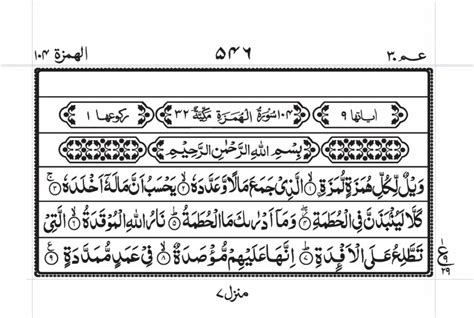 الهمزة ۱۰۴ ۵۴۶ عم ۳۰
اٰیاتها ۹ ۱۰۴ سُوْرَةُ الْهُمَزَةِ مَكِّيَّةٌ ۳۲ رکوعها ۱
بِسْمِ اللّٰهِ الرَّحْمٰنِ الرَّحِيْمِ
وَيْلٌ لِّكُلِّ هُمَزَةٍ لُّمَزَةِ ۙ﴿۱﴾ الَّذِيْ جَمَعَ مَالًا وَّعَدَّدَهٗ ۙ﴿۲﴾ يَحْسَبُ اَنَّ مَالَهٗٓ اَخْلَدَهٗ ۚ﴿۳﴾
كَلَّا لَيُنْۢبَذَنَّ فِي الْحُطَمَةِ ۖ﴿۴﴾ وَمَآ اَدْرٰىكَ مَا الْحُطَمَةُ ؕ﴿۵﴾ نَارُ اللّٰهِ الْمُوْقَدَةُ ۙ﴿۶﴾ الَّتِيْ
تَطَّلِعُ عَلَى الْاَفْـِٕدَةِ ؕ﴿۷﴾ اِنَّهَا عَلَيْهِمْ مُّؤْصَدَةٌ ۙ﴿۸﴾ فِيْ عَمَدٍ مُّمَدَّدَةٍ ﴿۹﴾ ع
۱
۹
۲۹
منزل ۷